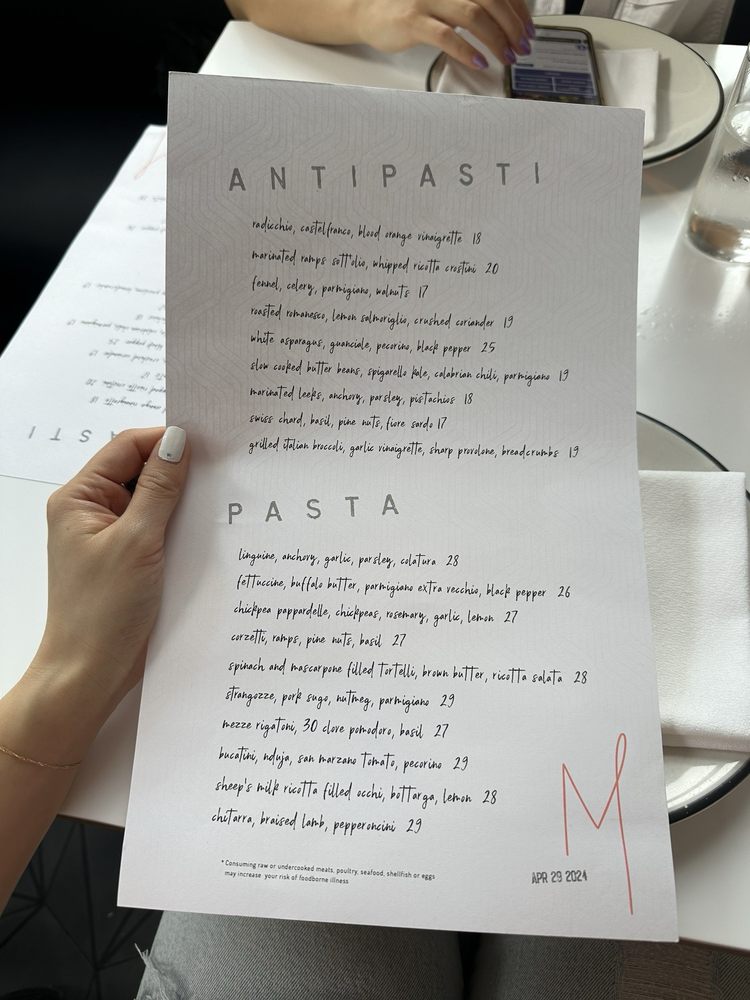 ANTIPASTI
radicchio, castelfranco, blood orange vinaigrette 18
marinated ramps sott'olio, whipped ricotta crostini 20
fennel, celery, parmigiano, walnuts 17
roasted romanesco, lemon salmoriglio, crushed coriander 19
white asparagus, guanciale, pecorino, black pepper 25
slow cooked butter beans, spigarello kale, calabrian chili, parmigiano 19
marinated leeks, anchovy, parsley, pistachios 18
swiss chard, basil, pine nuts, fiore sardo 17
grilled italian broccoli, garlic vinaigrette, sharp provolone, breadcrumbs 19
PASTA
linguine, anchovy, garlic, parsley, colatura 28
fettuccine, buffalo butter, parmigiano extra vecchio, black pepper 26
chickpea pappardelle, chickpeas, rosemary, garlic, lemon 27
corzetti, ramps, pine nuts, basil 27
spinach and mascarpone filled tortelli, brown butter, ricotta salata 28
strangozze, pork sugo, nutmeg, parmigiano 29
mezze rigatoni, 30 clove pomodoro, basil 27
bucatini, nduja, san marzano tomato, pecorino 29
sheep's milk ricotta filled occhi, bottarga, lemon 28
chitarra, braised lamb, pepperoncini 29
* Consuming raw or undercooked meats, poultry, seafood, shellfish or eggs
may increase your risk of foodborne illness
M
APR 29 2024